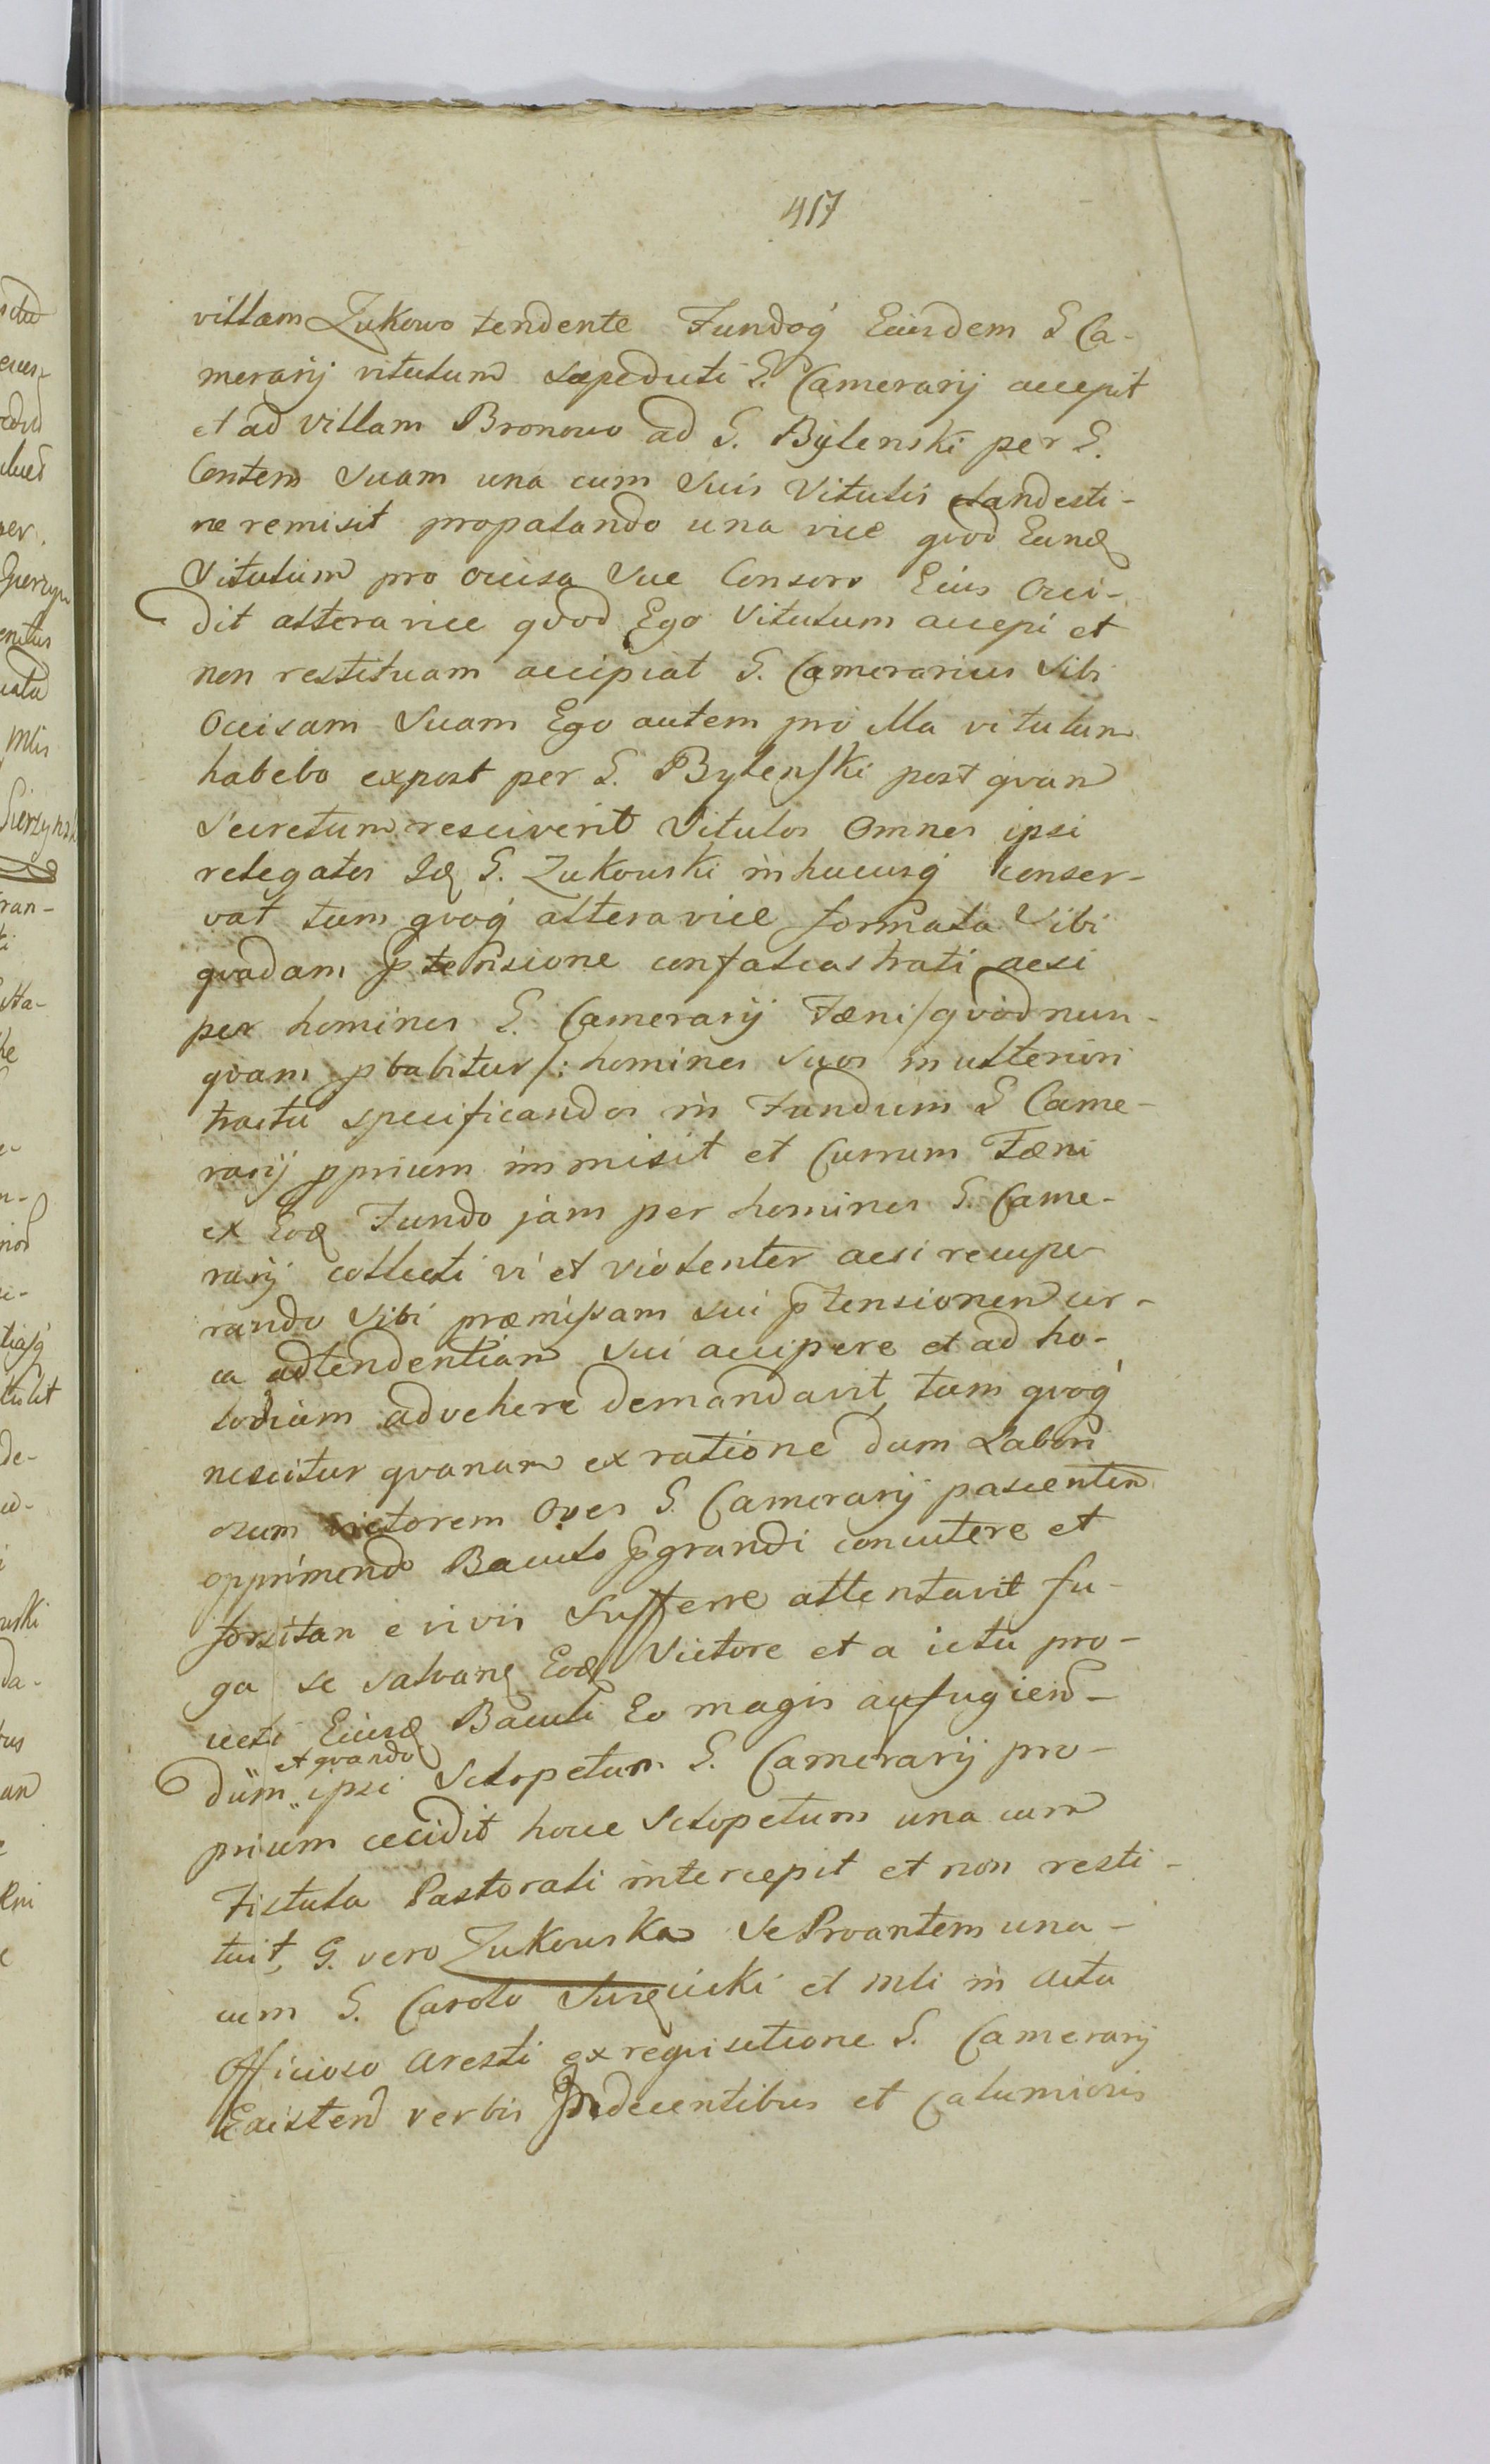 417
villam Zukowo tendente Fundoq́ Eiusdem G Ca-
merarij vitulum sæpedicti G. Camerarij accepit
et ad villam Bronowo ad G. Bylenski per G.
Contem Suam una cum Suis Vitulis clandesti-
ne remisit propalando una vice qvod Eund
Vitulum pro occisa Sue Consors Eius Occi-
dit altera vice qvod Ego Vitulum accepi et
non restituam accipiat G. Camerarius Sibi
Occisam Suam Ego autem pro illa vitulum
habebo expost per G. Bylenski post qvam
Secretum resciverit Vitulos Omnes ipsi
relegatos Id G. Zukowski in hucusq́ conser-
vat tum qvoq́ altera vice formata Sibi
qvadam ptensione confalcastrati acsi
per homines G. Camerarij Fæni /qvod nun-
qvam pbabitur/: homines Suos in ulteriori
tractu specificandos in Fundum G Came-
rarij pprium immisit et Currum Fæni
ex Eod Fundo jam per homines G. Came-
rarij collecti vi et violenter acsi recupe-
rando Sibi præmissam sui ptensionem cir-
ca adtendentiam Sui accipere et ad ho-
rreum advehere demandavit, tum qvoq́
nescitur qvanam ex ratione dum Labori
osum Victorem Oves G. Camerarij pascentem
opprimendo Baculo pgrandi concutere et
forsitan e vivis Sufferre attentavit fu-
ga se salvand Eod Victore et a ictu pro-
jecti Eiusd Baculi Eo magis aufugien-
dum et qvando ipsi Sclopetum G. Camerarij pro-
prium cecidit hocce Sclopetum una cum
Fistula Pastorali intercepit et non resti-
tuit, G. vero Zukowska Se Proantem una-
cum G. Carolo et mli in actu
Officioso Aresti ex reqvisitione G. Camerarij
Existen verbis Indecentibus et Calumiosis